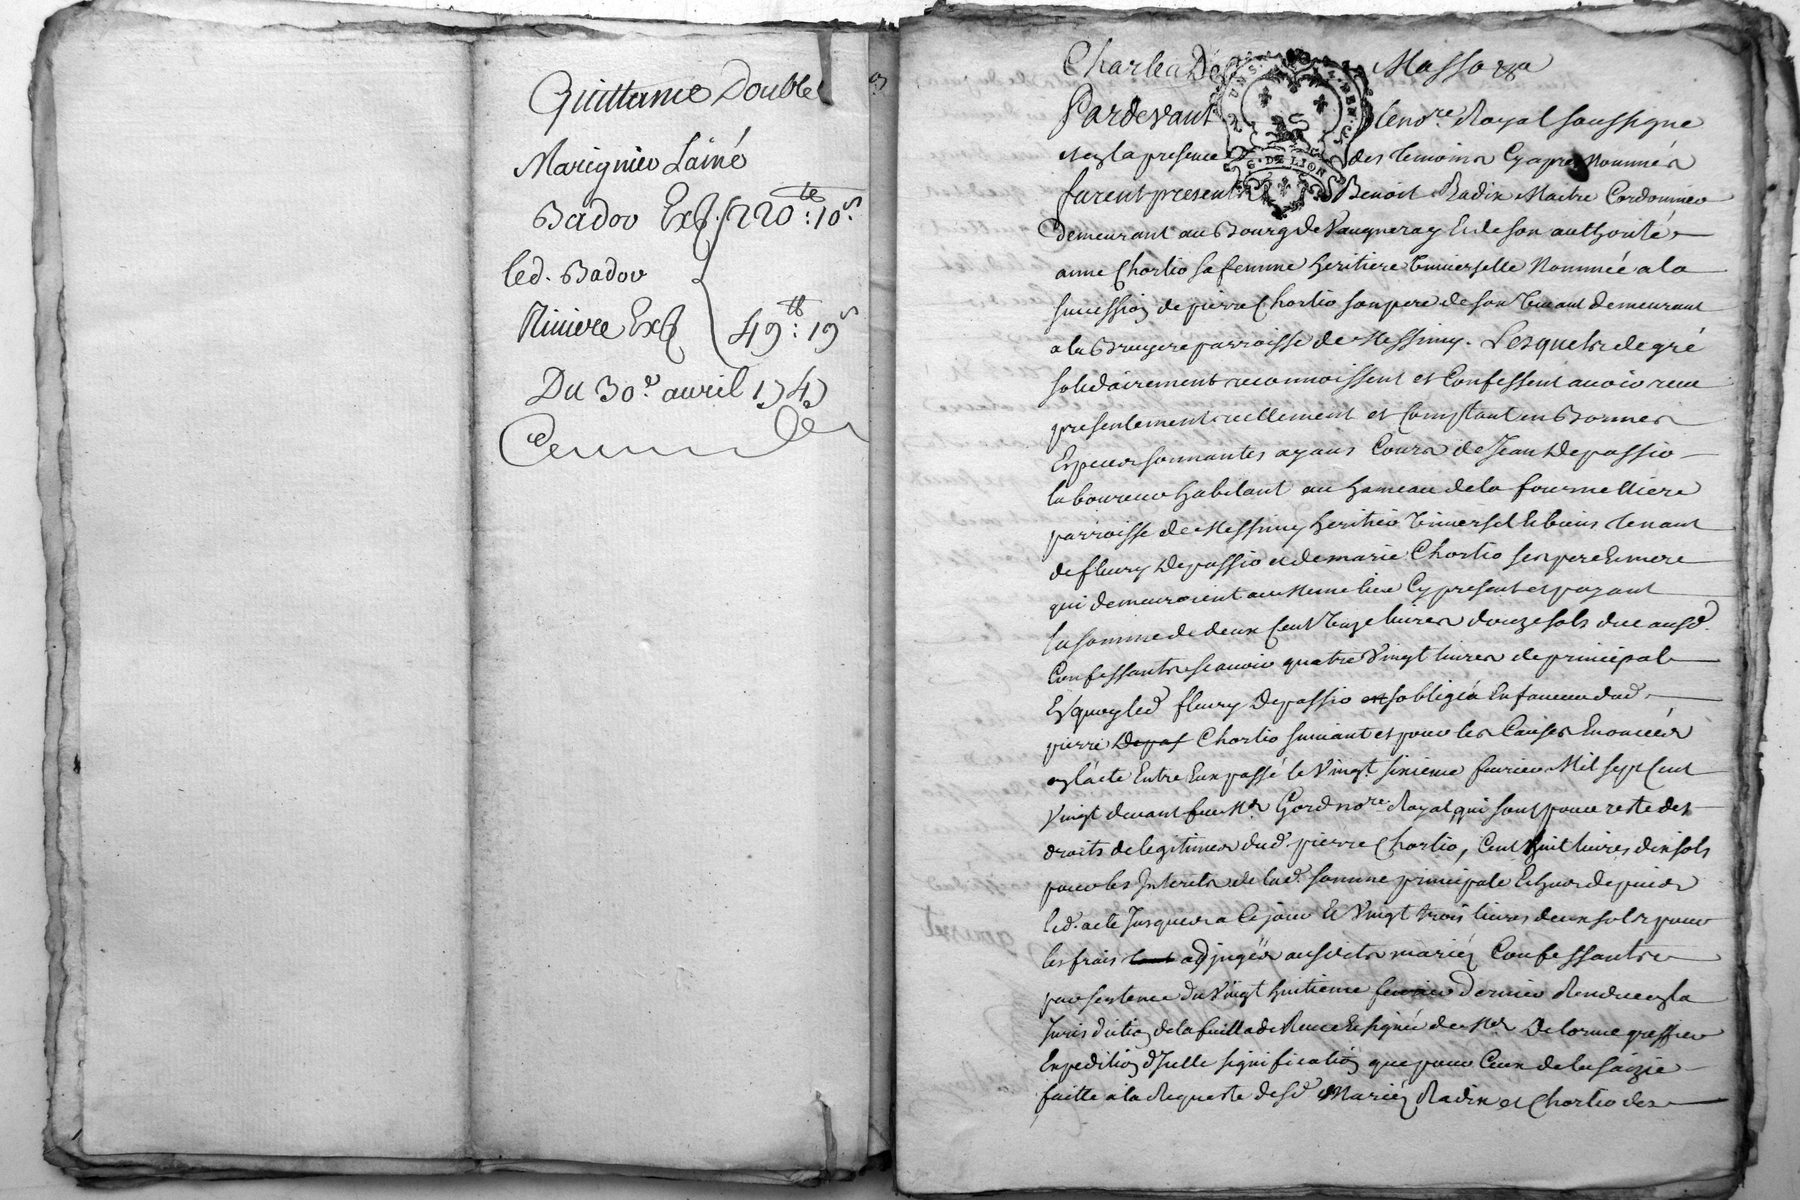 Quittance Double
Marignier Lainé
Badov Exp. 220tt: 10s.
led. Badov
Riviere Exp 49tt: 19s
Du 30e avril 1747
3
Charles Massova
Pardevant le nore. Royal soussigne
et en la presence des temoins cy apres nommés
furent presents Benoit Radix Maitre Cordonnier
demeurant au Bourg de Vaugneray et de son authorité
anne Chortio sa femme heritiere universelle nommée a la
succession de pierre Chortio son pere de son vivant demeurant
a la Bruyere parroisse de Messimy. Lesquels de gré
solidairement reconnoissent et Confessent avoir receu
presentement reellement et comptant en Bonnes
Especes sonnantes ayans Cours de Jean Depassio
laboureur habitant au hameau de la fourmelliere
parroisse de Messimy heritier universel et biens tenant
de fleury Depassio et de marie Chortio ses pere et mere
qui demeuroient au meme lieu Cy present et payant
la somme de deux Cent unze livres douze sols due ausd.
Confessants scavoir quatre vingt livres de principal
En quoy led fleury Depassio est sobligéa En faveur dud
pierre Depas Chortio suivant et pour les Causes Enoncées
en lacte Entre Eux passé le vingt sixieme fevrier Mil sept Cent
vingt devant feu Me. Gord nore. Royal, qui sont pour reste des
droits de legitimes dud. pierre Chortio, Cent huit livres dix sols
pour les Interets de lad. somme principale Echus depuis
led. acte Jusques a Ce jour Et vingt trois livres deux sols pour
les frais adjugés ausdits mariéz Confessants
par sentence du vingt huitieme fevrier dernier Rendue en la
Jurisdiction de la feuillade Receu Et signée de Me Delorme greffier
Expedition d'Icelle signification que pour Ceux de la saizie
faitte a la Requeste desd. Mariéz Radix et Chortio des